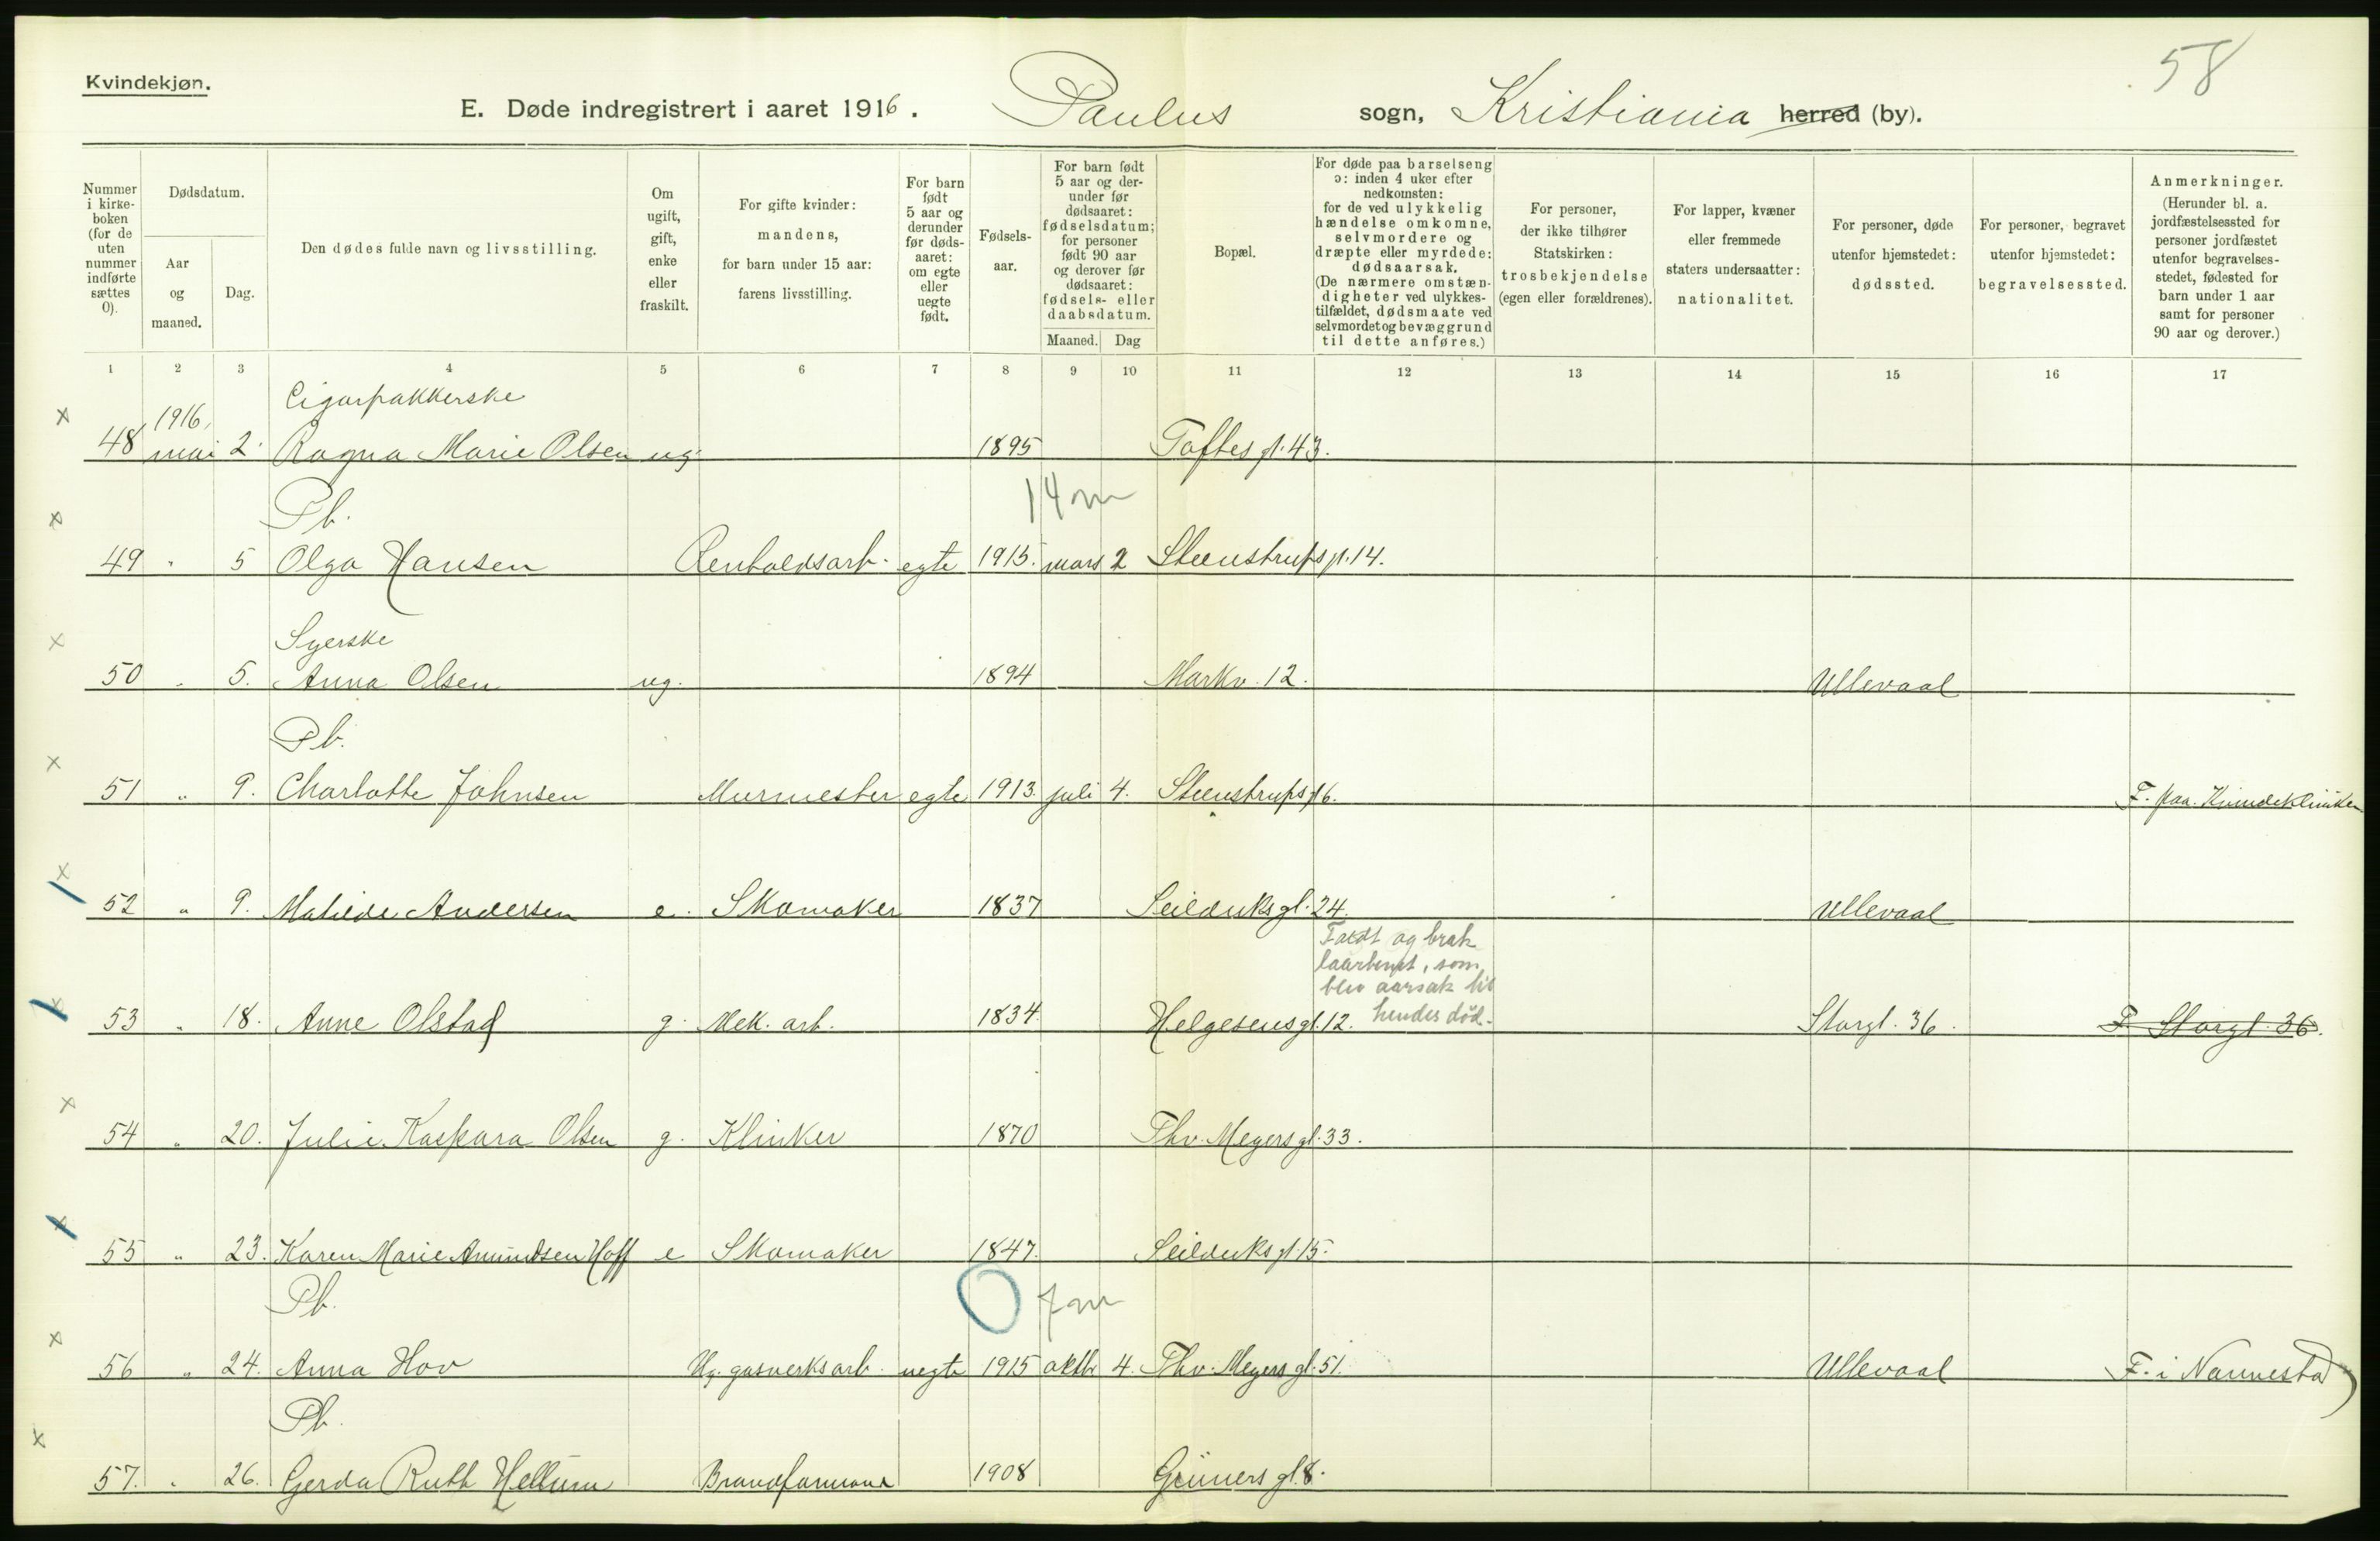 58
Kvindekjøn.
E. Døde indregistrert i aaret 1916. Paulus sogn, Kristiania herred (by).
Nummer i kirkeboken (for de uten nummer indførte sættes 0).
Dødsdatum.
Aar og maaned.
Dag.
Den dødes fulde navn og livsstilling.
Om ugift, gift, enke eller fraskilt.
For gifte kvinder: mandens, for barn under 15 aar: farens livsstilling.
For barn født 5 aar og derunder før dødsaaret: om egte eller uegte født.
Fødselsaar.
For barn født 5 aar og derunder før dødsaaret: fødselsdatum; for personer født 90 aar og derover før dødsaaret: fødsels- eller daabsdatum.
Maaned. Dag
Bopæl.
For døde paa barselseng ɔ: inden 4 uker efter nedkomsten: for de ved ulykkelig hændelse omkomne, selvmordere og dræpte eller myrdede: dødsaarsak. (De nærmere omstændigheter ved ulykkestilfældet, dødsmaate ved selvmordet og bevæggrund til dette anføres.)
For personer, der ikke tilhører Statskirken: trosbekjendelse (egen eller forældrenes).
For lapper, kvæner eller fremmede staters undersaatter: nationalitet.
For personer, døde utenfor hjemstedet: dødssted.
For personer, begravet utenfor hjemstedet: begravelsessted.
Anmerkninger. (Herunder bl. a. jordfæstelsessted for personer jordfæstet utenfor begravelsesstedet, fødested for barn under 1 aar samt for personer 90 aar og derover.)
1 2 3 4 5 6 7 8 9 10 11 12 13 14 15 16 17
1916, Cigarpakkerske
x 48 mai 2. Ragna Marie Olsen ug. 1895 Toftes gt. 43.
Pb. 14 m
x 49 " 5 Olga Hansen Renholdsarb. egte 1915. mars 2 Steenstrups gt. 14.
Syerske
x 50 " 5. Anna Olsen ug. 1894 Markv. 12. Ullevaal
Pb.
x 51 " 9. Charlotte Johnsen Murmester egte 1913. juli 4. Steenstrups gt 6. F. paa Kvindeklinikken
x 52 " 9. Matilde Andersen e. Skomaker 1837 Seilduksgt. 24. Ullevaal
Faldt og brak
laarbenet, som
blev aarsak til
hendes død.
x 53 " 18. Anne Olstad g. Mek. arb. 1834. Helgesens gt. 12. Storgt. 36. F. Storgt. 36.
x 54 " 20. Julie Kaspara Olsen g. Klinker 1870 Thv. Meyers gt. 33.
x 55 " 23. Karen Marie Amundsen Hoff e Skomaker 1847. Seilduks gt. 15.
Pb. 0 7 m
x 56 " 24. Anna Hov Ug. gasverksarb. uegte 1915 oktbr 4. Thv. Meyers gt. 51. Ullevaal F. i Nannestad
Pb.
x 57. " 26. Gerda Ruth Hellum Brandformand 1908 Grüners gt. 8.